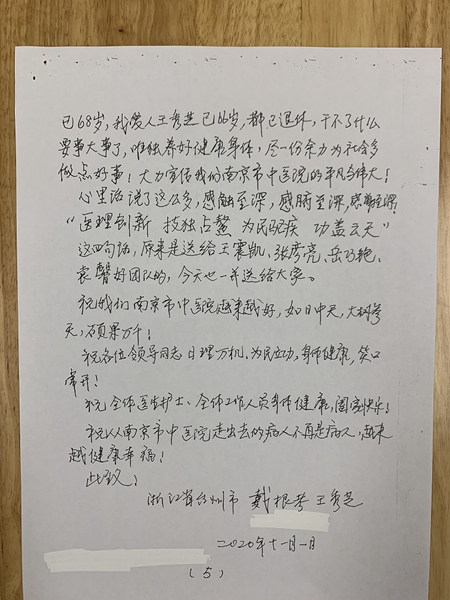 已68岁，我爱人王秀芝已66岁，都已退休，干不了什么
要事大事了，唯独养好健康身体，尽一份余力为社会多
做点好事！大力宣传我们南京市中医院的平凡与伟大！
心里话说了这么多，感触至深，感腑至深，
“医理创新 技独占鳌 为民除疾 功盖云天”
这四句话，原来是送给王震凯、张彦亮、岳巧艳、
袁馨好团队的，今天也一并送给大家。
祝我们南京市中医院越来越好，如日中天，大树参
天，硕果万千！
祝各位领导同志日理万机、为民立功，身体健康，笑口
常开！
祝全体医生护士、全体工作人员身体健康，阖家快乐！
祝从南京市中医院走出去的病人不再是病人，越来
越健康幸福！
此致！
浙江省台州市 戴根 王秀芝
二〇二〇年十一月一日
（5）